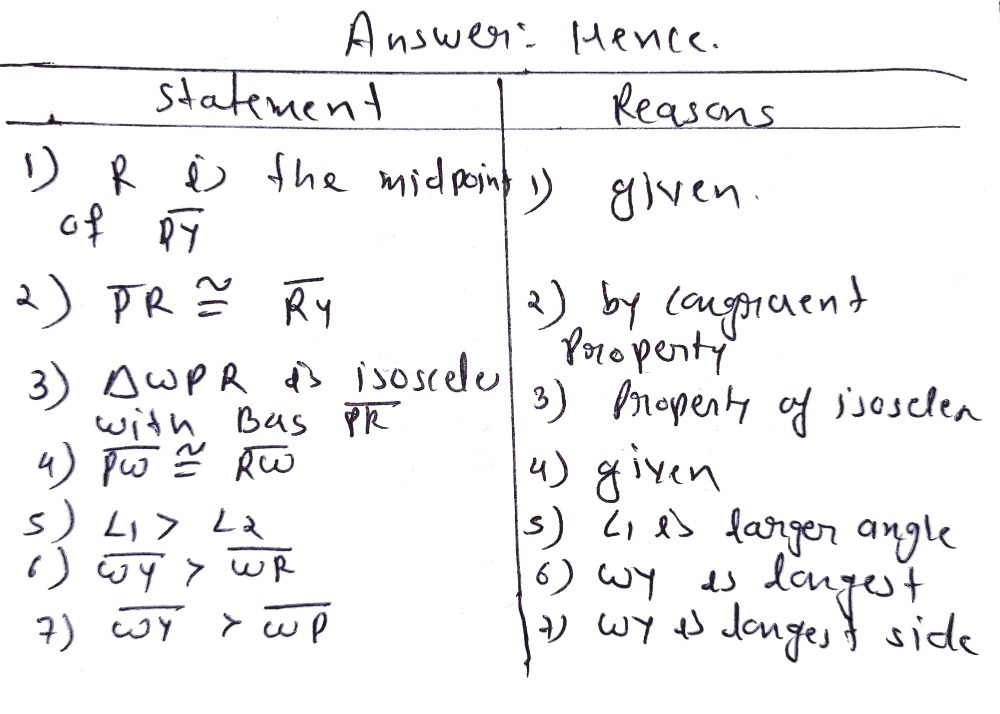 Answer:- Hence.
Statement
Reasons
1) R is the midpoint
of PY
1) given.
2) PR ≅ RY
2) by Congruent
Property
3) ΔWPR is isoscele
with Bas PR
3) Property of isoscles
4) PW ≅ RW
4) given
5) ∠1 > ∠2
5) ∠1 is larger angle
6) WY > WR
6) WY is longest
7) WY > WP
7) WY is longest side